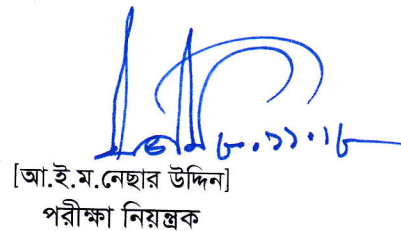 ৮.১১.১৮
[আ.ই.ম.নেছার উদ্দিন]
পরীক্ষা নিয়ন্ত্রক